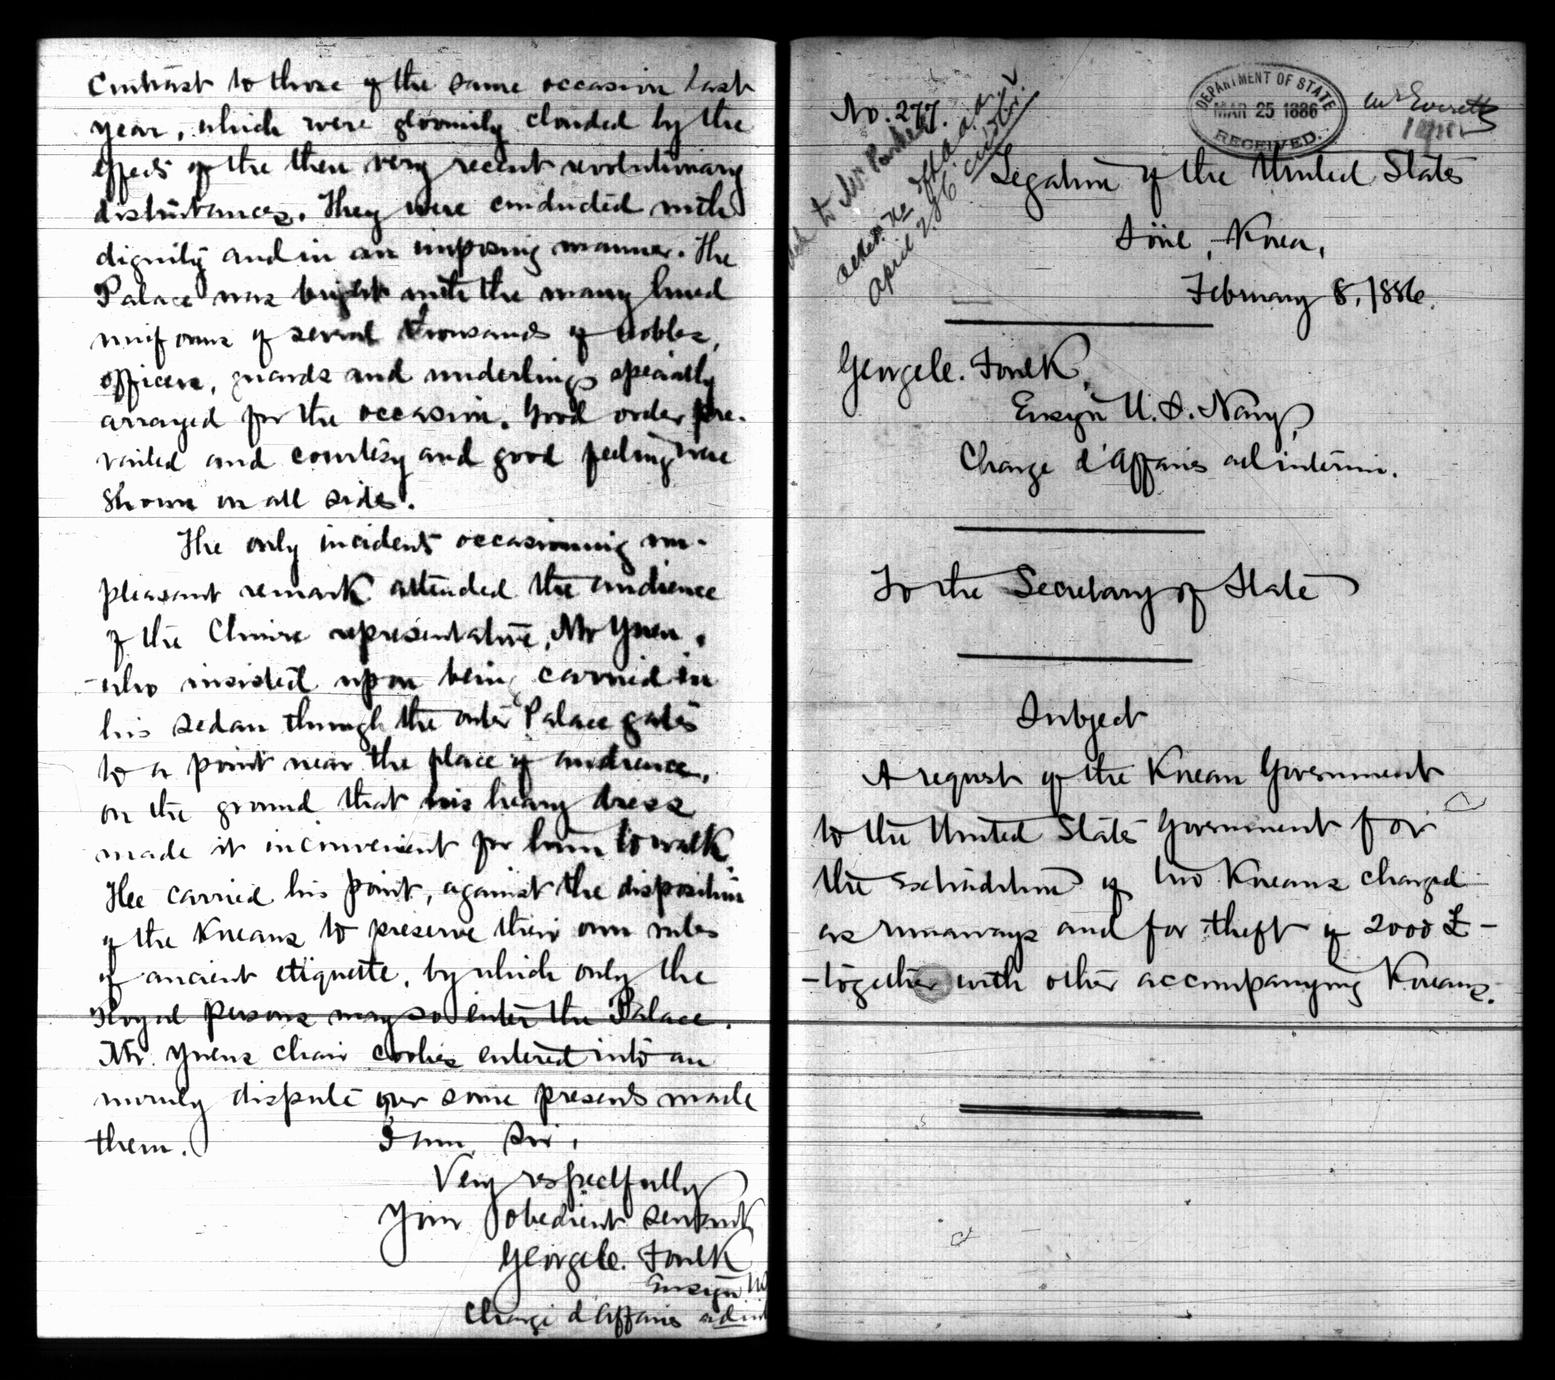 Contrast to those of the same occasion last
year, which were gloomily clouded by the
effects of the then very recent revolutionary
disturbances. They were conducted with
dignity and in an imposing manner. The
Palace was bright with the many hued
uniforms of several thousands of nobles,
officers, guards and underlings specially
arrayed for the occasion. Good order pre-
vailed and courtesy and good feeling were
shown on all sides.
The only incident occasioning un-
pleasant remark attended the audience
of the Chinese representative, Mr Yuen,
who insisted upon being carried in
his sedan through the outer Palace gates
to a point near the place of audience,
on the ground that his heavy dress
made it inconvenient for him to walk.
Hee carried his point, against the disposition
of the Koreans to preserve their own rules
of ancient etiquette, by which only the
Royal persons may so enter the Palace.
Mr. Yuens chair coolies entered into an
unruly dispute over some presents made
them. I am, Sir,
Very respectfully
Your obedient servant
George C. Foulk
Ensign U.S.
Chargé d'Affaires ad int
No. 277.
DEPARTMENT OF STATE
MAR 25 1886
RECEIVED.
Mr Everett
Legation of the United States
Söul, Korea,
February 8, 1886.
George C. Foulk,
Ensign U.S. Navy,
Charge d'Affaires ad interim.
To the Secretary of State
Subject
A request of the Korean Government
to the United States Government for
the Extradition of two Koreans charged
as runaways and for theft of 2000 £ -
- together with other accompanying Koreans.